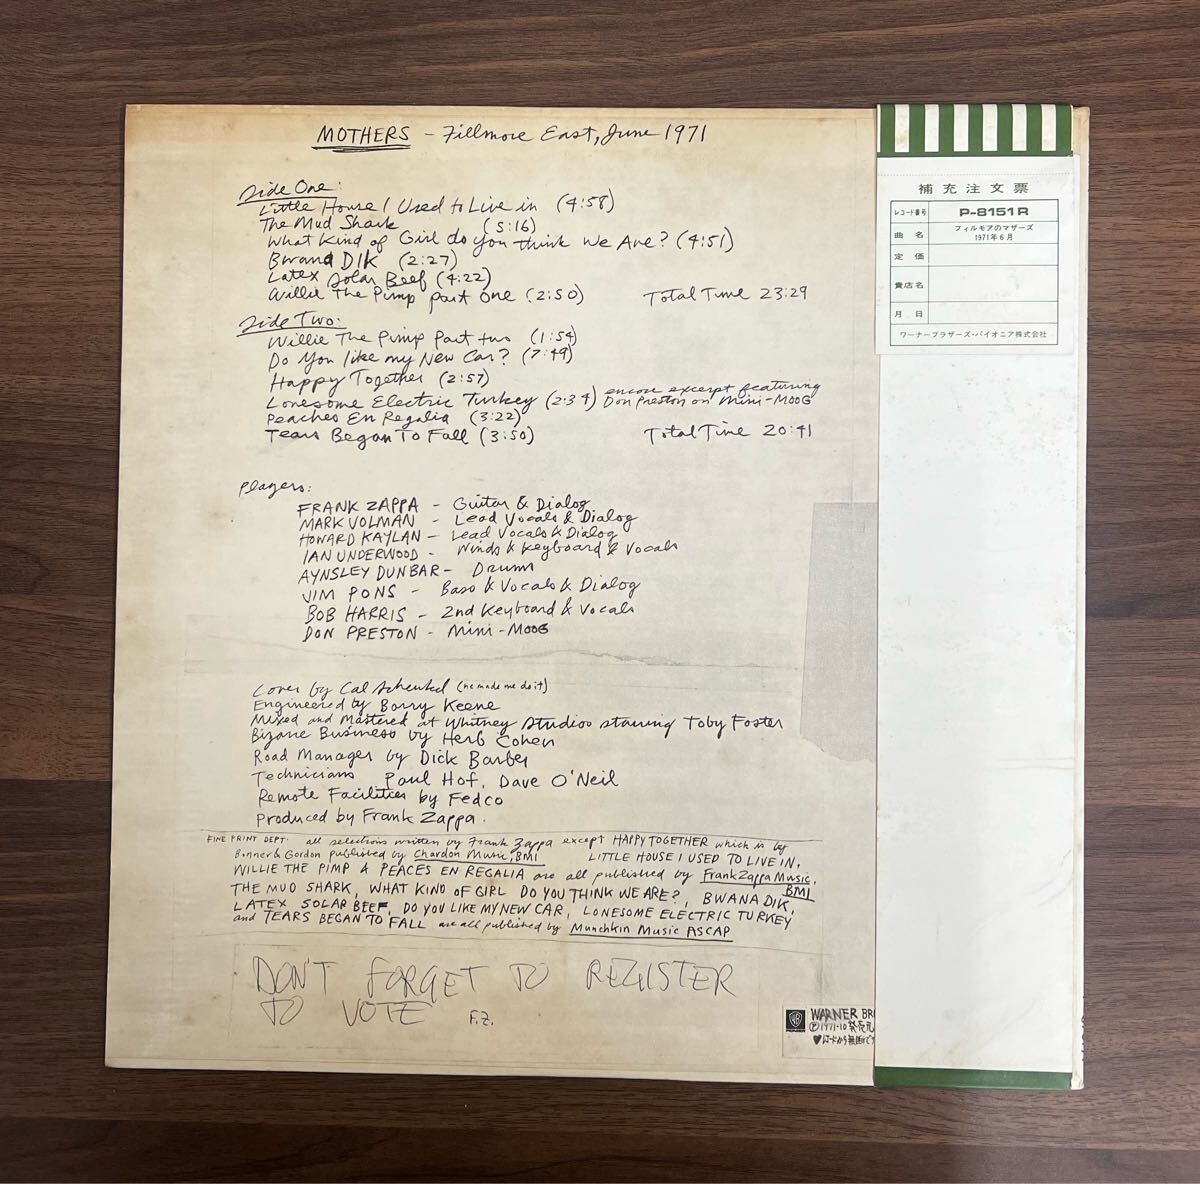 MOTHERS - Fillmore East, June 1971
Side One:
Little House I Used to Live in (4:58)
The Mud Shark (5:16)
What Kind of Girl do you think We Are? (4:51)
Bwana DIK (2:27)
Latex Solar Beef (4:22)
Willie The Pimp part One (2:50) Total Time 23:29
Side Two:
Willie The Pimp Part two (1:54)
Do You like my New Car? (7:49)
Happy Together (2:57)
Lonesome Electric Turkey (2:34) encore excerpt featuring
Don Preston on Mini-MOOG
Peaches En Regalia (3:22)
Tears Began To Fall (3:50) Total Time 20:41
players:
FRANK ZAPPA - Guitar & Dialog
MARK VOLMAN - Lead Vocals & Dialog
HOWARD KAYLAN - Lead Vocals & Dialog
IAN UNDERWOOD - Winds & Keyboard & Vocals
AYNSLEY DUNBAR - Drums
JIM PONS - Bass & Vocals & Dialog
BOB HARRIS - 2nd Keyboard & Vocals
DON PRESTON - Mini-MOOG
Cover by Cal Schenkel (he made me do it)
Engineered by Barry Keene
Mixed and Mastered at Whitney Studios starring Toby Foster
Bizarre Business by Herb Cohen
Road Manager by Dick Barber
Technicians Paul Hof, Dave O'Neil
Remote Facilities by Fedco
Produced by Frank Zappa.
FINE PRINT DEPT. all selections written by Frank Zappa except HAPPY TOGETHER which is by
Bonner & Gordon published by Chardon Music, BMI LITTLE HOUSE I USED TO LIVE IN,
WILLIE THE PIMP & PEACES EN REGALIA are all published by Frank Zappa Music,
BMI
THE MUD SHARK, WHAT KIND OF GIRL DO YOU THINK WE ARE?, BWANA DIK,
LATEX SOLAR BEEF, DO YOU LIKE MY NEW CAR, LONESOME ELECTRIC TURKEY
and TEARS BEGAN TO FALL are all published by Munchkin Music ASCAP
DON'T FORGET TO REGISTER
TO VOTE F.Z.
WARNER BR
Ⓟ1971-10 発売元
補充注文票
レコード番号 P-8151R
曲名 フィルモアのマザーズ
1971年6月
定価
貴店名
月日
ワーナーブラザーズ・パイオニア株式会社